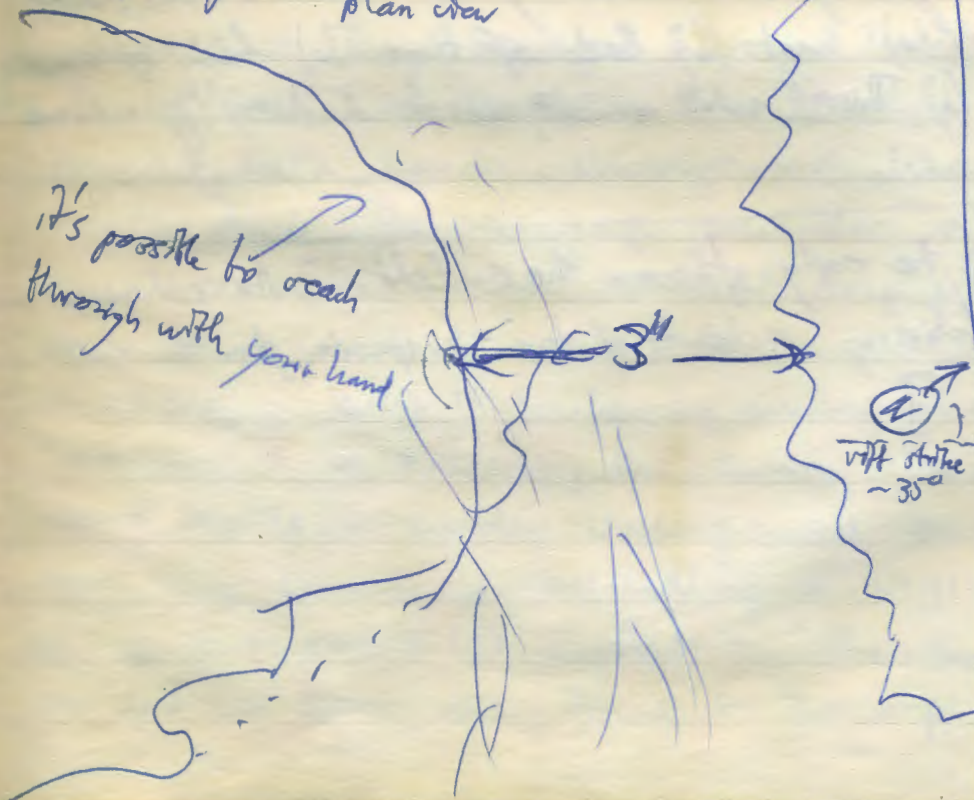 plan view
it's possible to reach
through with your hand
3"
a
rift strike
~35°